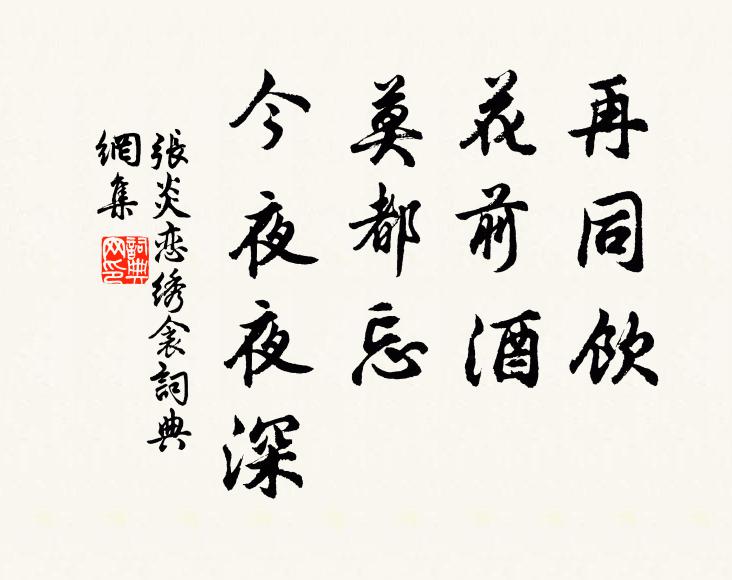 再同饮
花前酒
莫都忘
今夜夜深
張炎恋绣衾詞典
網集
詞典
网印